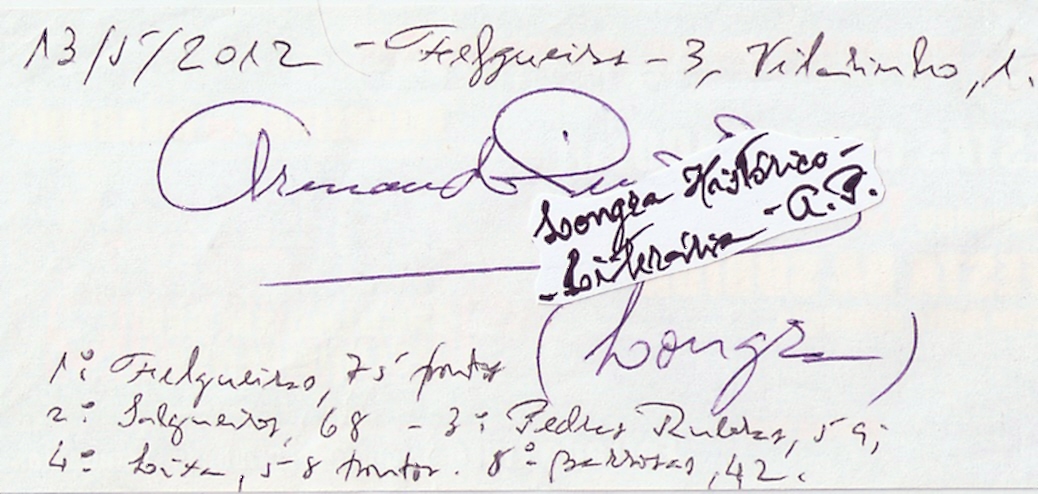 13/5/2012 - Felgueiras - 3, Vilarinho, 1.
Armando
Longra Histórico-
-Literária - A.P.
(Longra)
1º: Felgueiras, 75 pontos
2º: Salgueiros, 68 - 3º: Pedras Rubras, 59;
4º: Lixa, 58 pontos. 8º- Barrosas, 42.